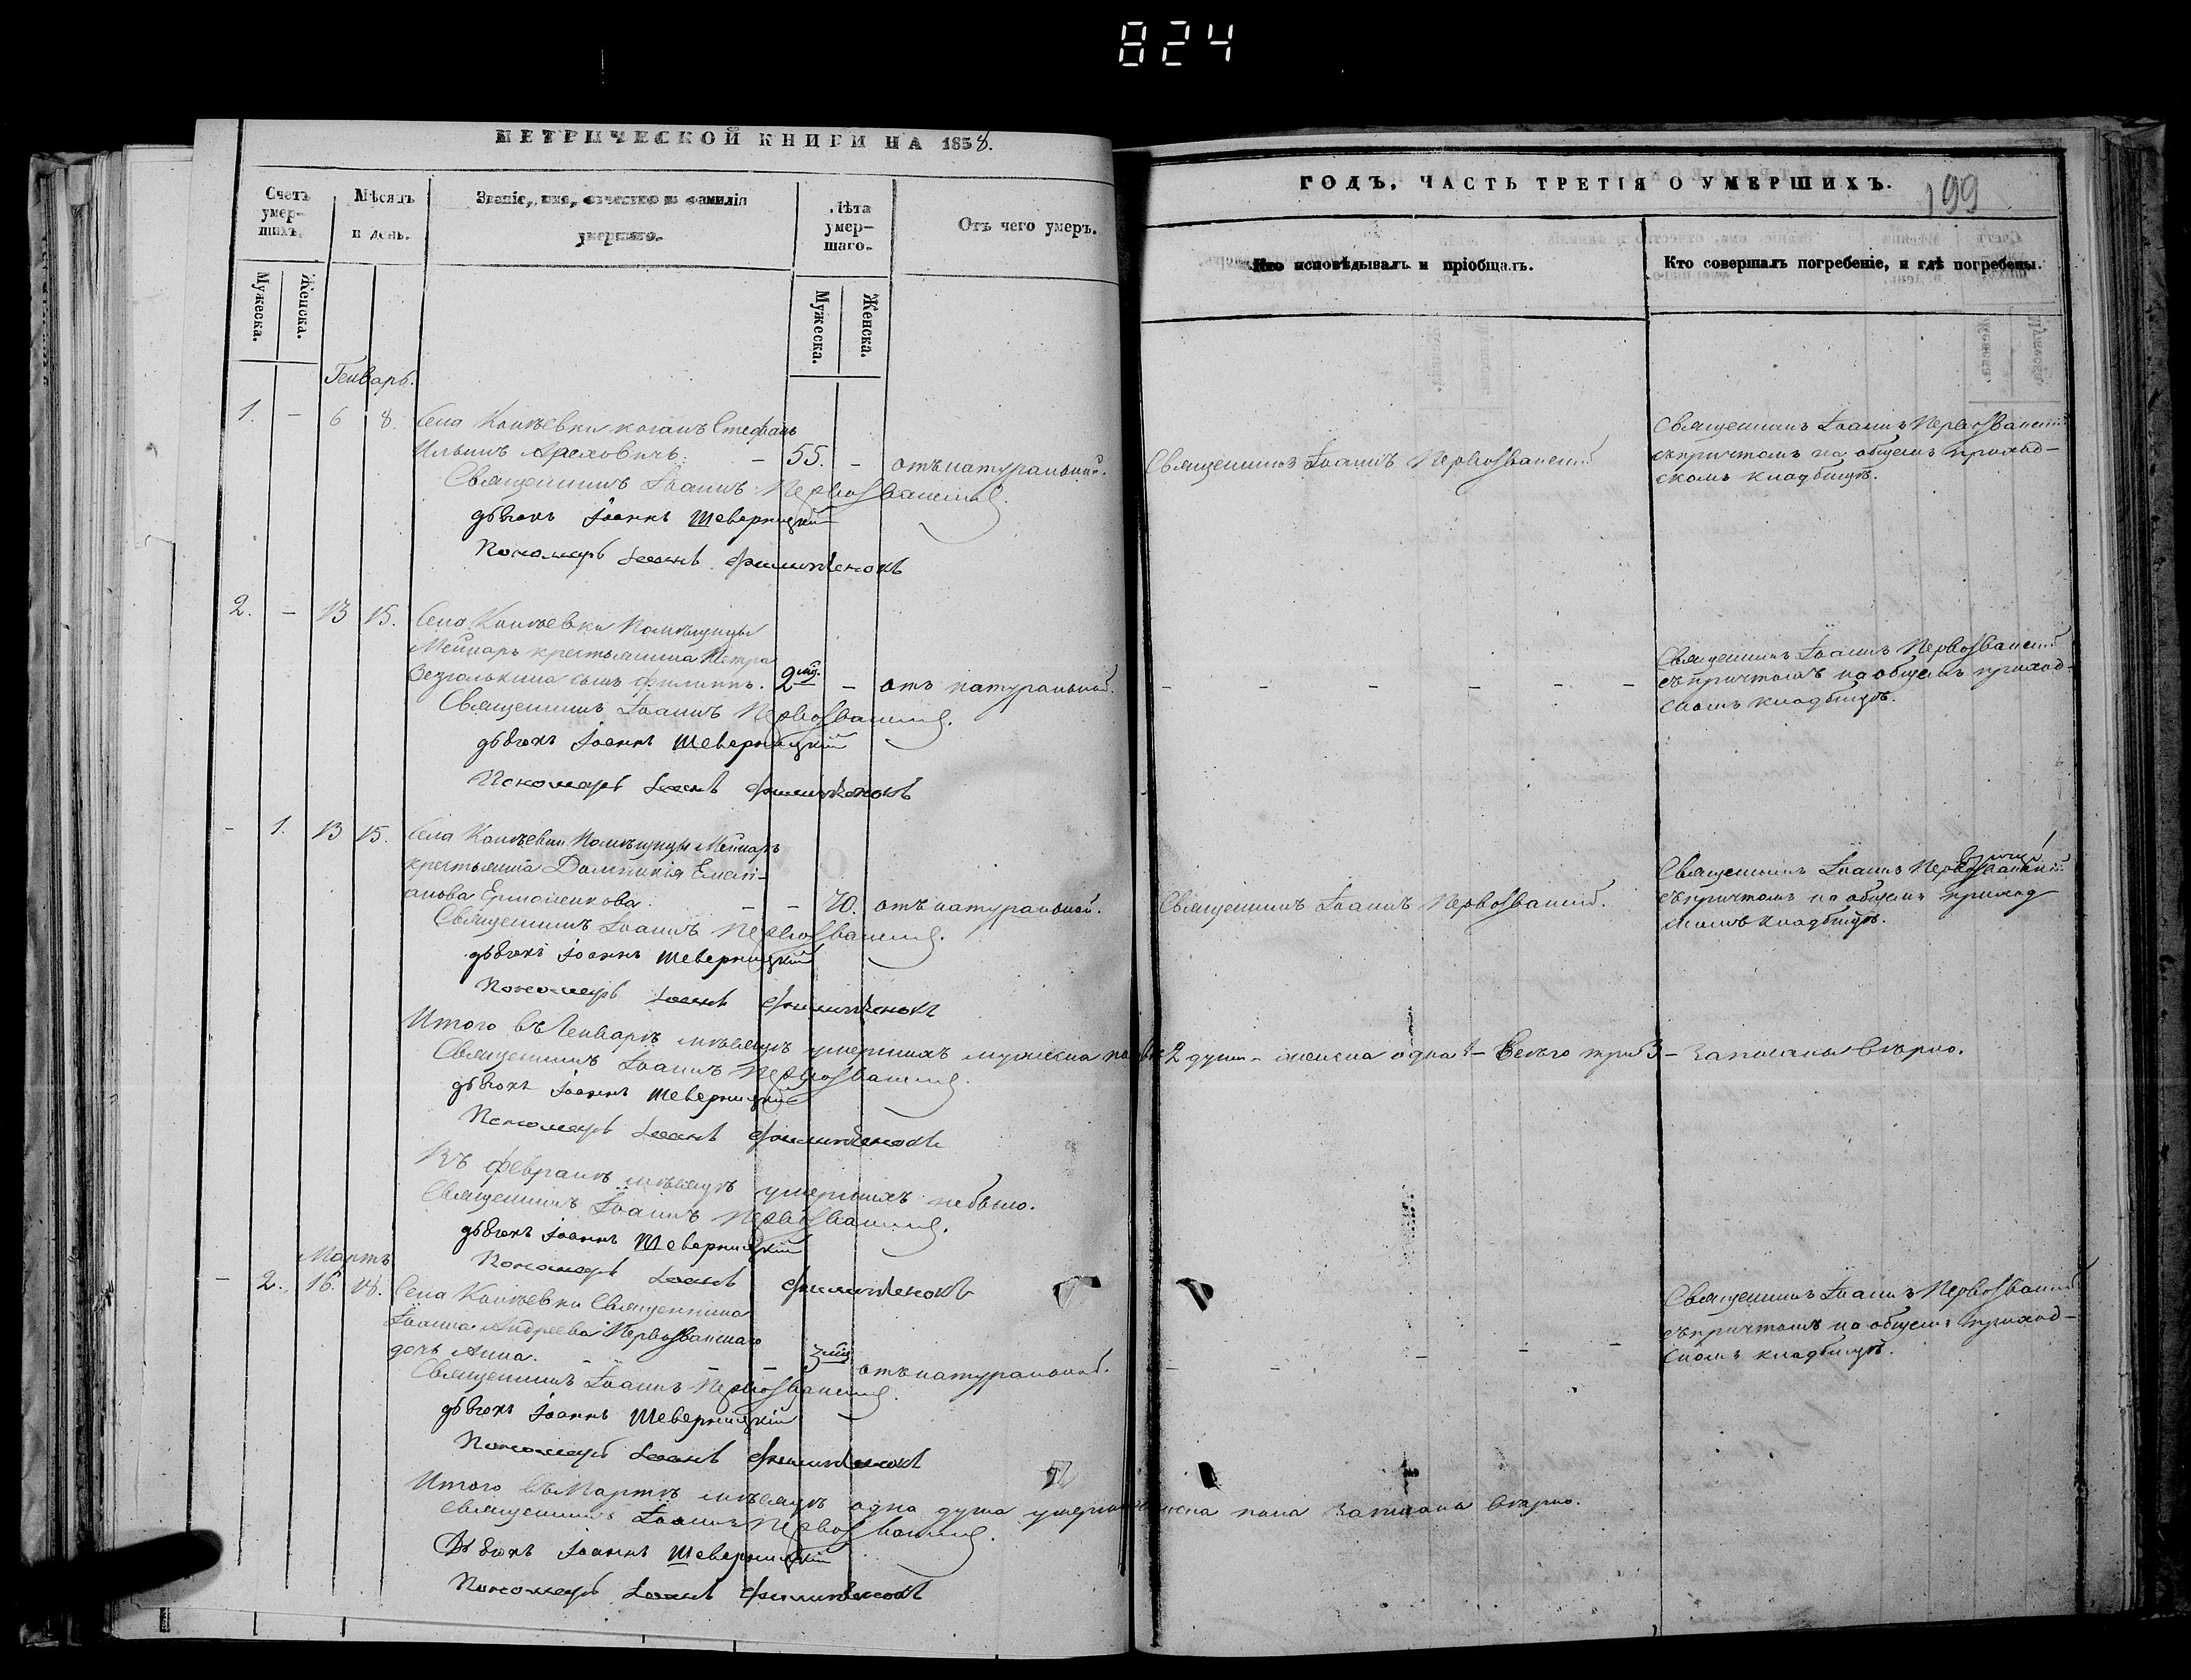 824
МЕТРИЧЕСКОЙ КНИГИ НА 1858.
Счетъ умер-шихъ.
Мѣсяцъ и день.
Званіе, имя, отчество и фамилія умершаго.
Лѣта умер-шаго.
Отъ чего умеръ.
Мужеска.
Женска.
Мужеска.
Женска.
Генварь.
1. - 6 8. Села козакъ Стефанъ
Ильинъ - 55. - отъ натуральной.
Священникъ Іоаннъ Первозванскій
дьячокъ Іоаннъ Шеверницкій
Пономарь Іоаннъ
2. - 13 15. Села Помѣщицы
крестьянина Петра
сынъ Филиппъ. 2 мѣс. - отъ натуральной.
Священникъ Іоаннъ Первозванскій
дьячокъ Іоаннъ Шеверницкій
Пономарь Іоаннъ
- 1. 13 15. Села Помѣщицы
крестьянка Домникія Емелі-
анова Ермоленкова. - - 70. отъ натуральной.
Священникъ Іоаннъ Первозванскій
дьячокъ Іоаннъ Шеверницкій
Пономарь Іоаннъ
Итого въ Генварѣ мѣсяцѣ умершихъ мужеска 2 души - женска одна 1 - Всего три 3 - записаны вѣрно.
Священникъ Іоаннъ Первозванскій
дьячокъ Іоаннъ Шеверницкій
Пономарь Іоаннъ
Въ Февралѣ мѣсяцѣ умершихъ небыло.
Священникъ Іоаннъ Первозванскій
дьячокъ Іоаннъ Шеверницкій
Пономарь Іоаннъ
Мартъ
- 2. 16. 18. Села Священника
Іоанна Андреева Первозванскаго
дочь Анна. - - - 3 мѣс. отъ натуральной.
Священникъ Іоаннъ Первозванскій
дьячокъ Іоаннъ Шеверницкій
Пономарь Іоаннъ
Итого въ Мартѣ мѣсяцѣ одна душа женска пола записана вѣрно.
Священникъ Іоаннъ Первозванскій
Дьячокъ Іоаннъ Шеверницкій
Пономарь Іоаннъ
ГОДЪ, ЧАСТЬ ТРЕТІЯ О УМЕРШИХЪ.
199
Кто исповѣдывалъ и пріобщалъ.
Кто совершалъ погребеніе, и гдѣ погребены.
Священникъ Іоаннъ Первозванскій
Священникъ Іоаннъ Первозванскій
съ причтомъ на общемъ приход-
скомъ кладбищѣ.
Священникъ Іоаннъ Первозванскій
съ причтомъ на общемъ приход-
скомъ кладбищѣ.
Священникъ Іоаннъ Первозванскій.
Священникъ Іоаннъ Первозванскій
съ причтомъ на общемъ приход
скомъ кладбищѣ.
Священникъ Іоаннъ Первозванскій
съ причтомъ на общемъ приход-
скомъ кладбищѣ.